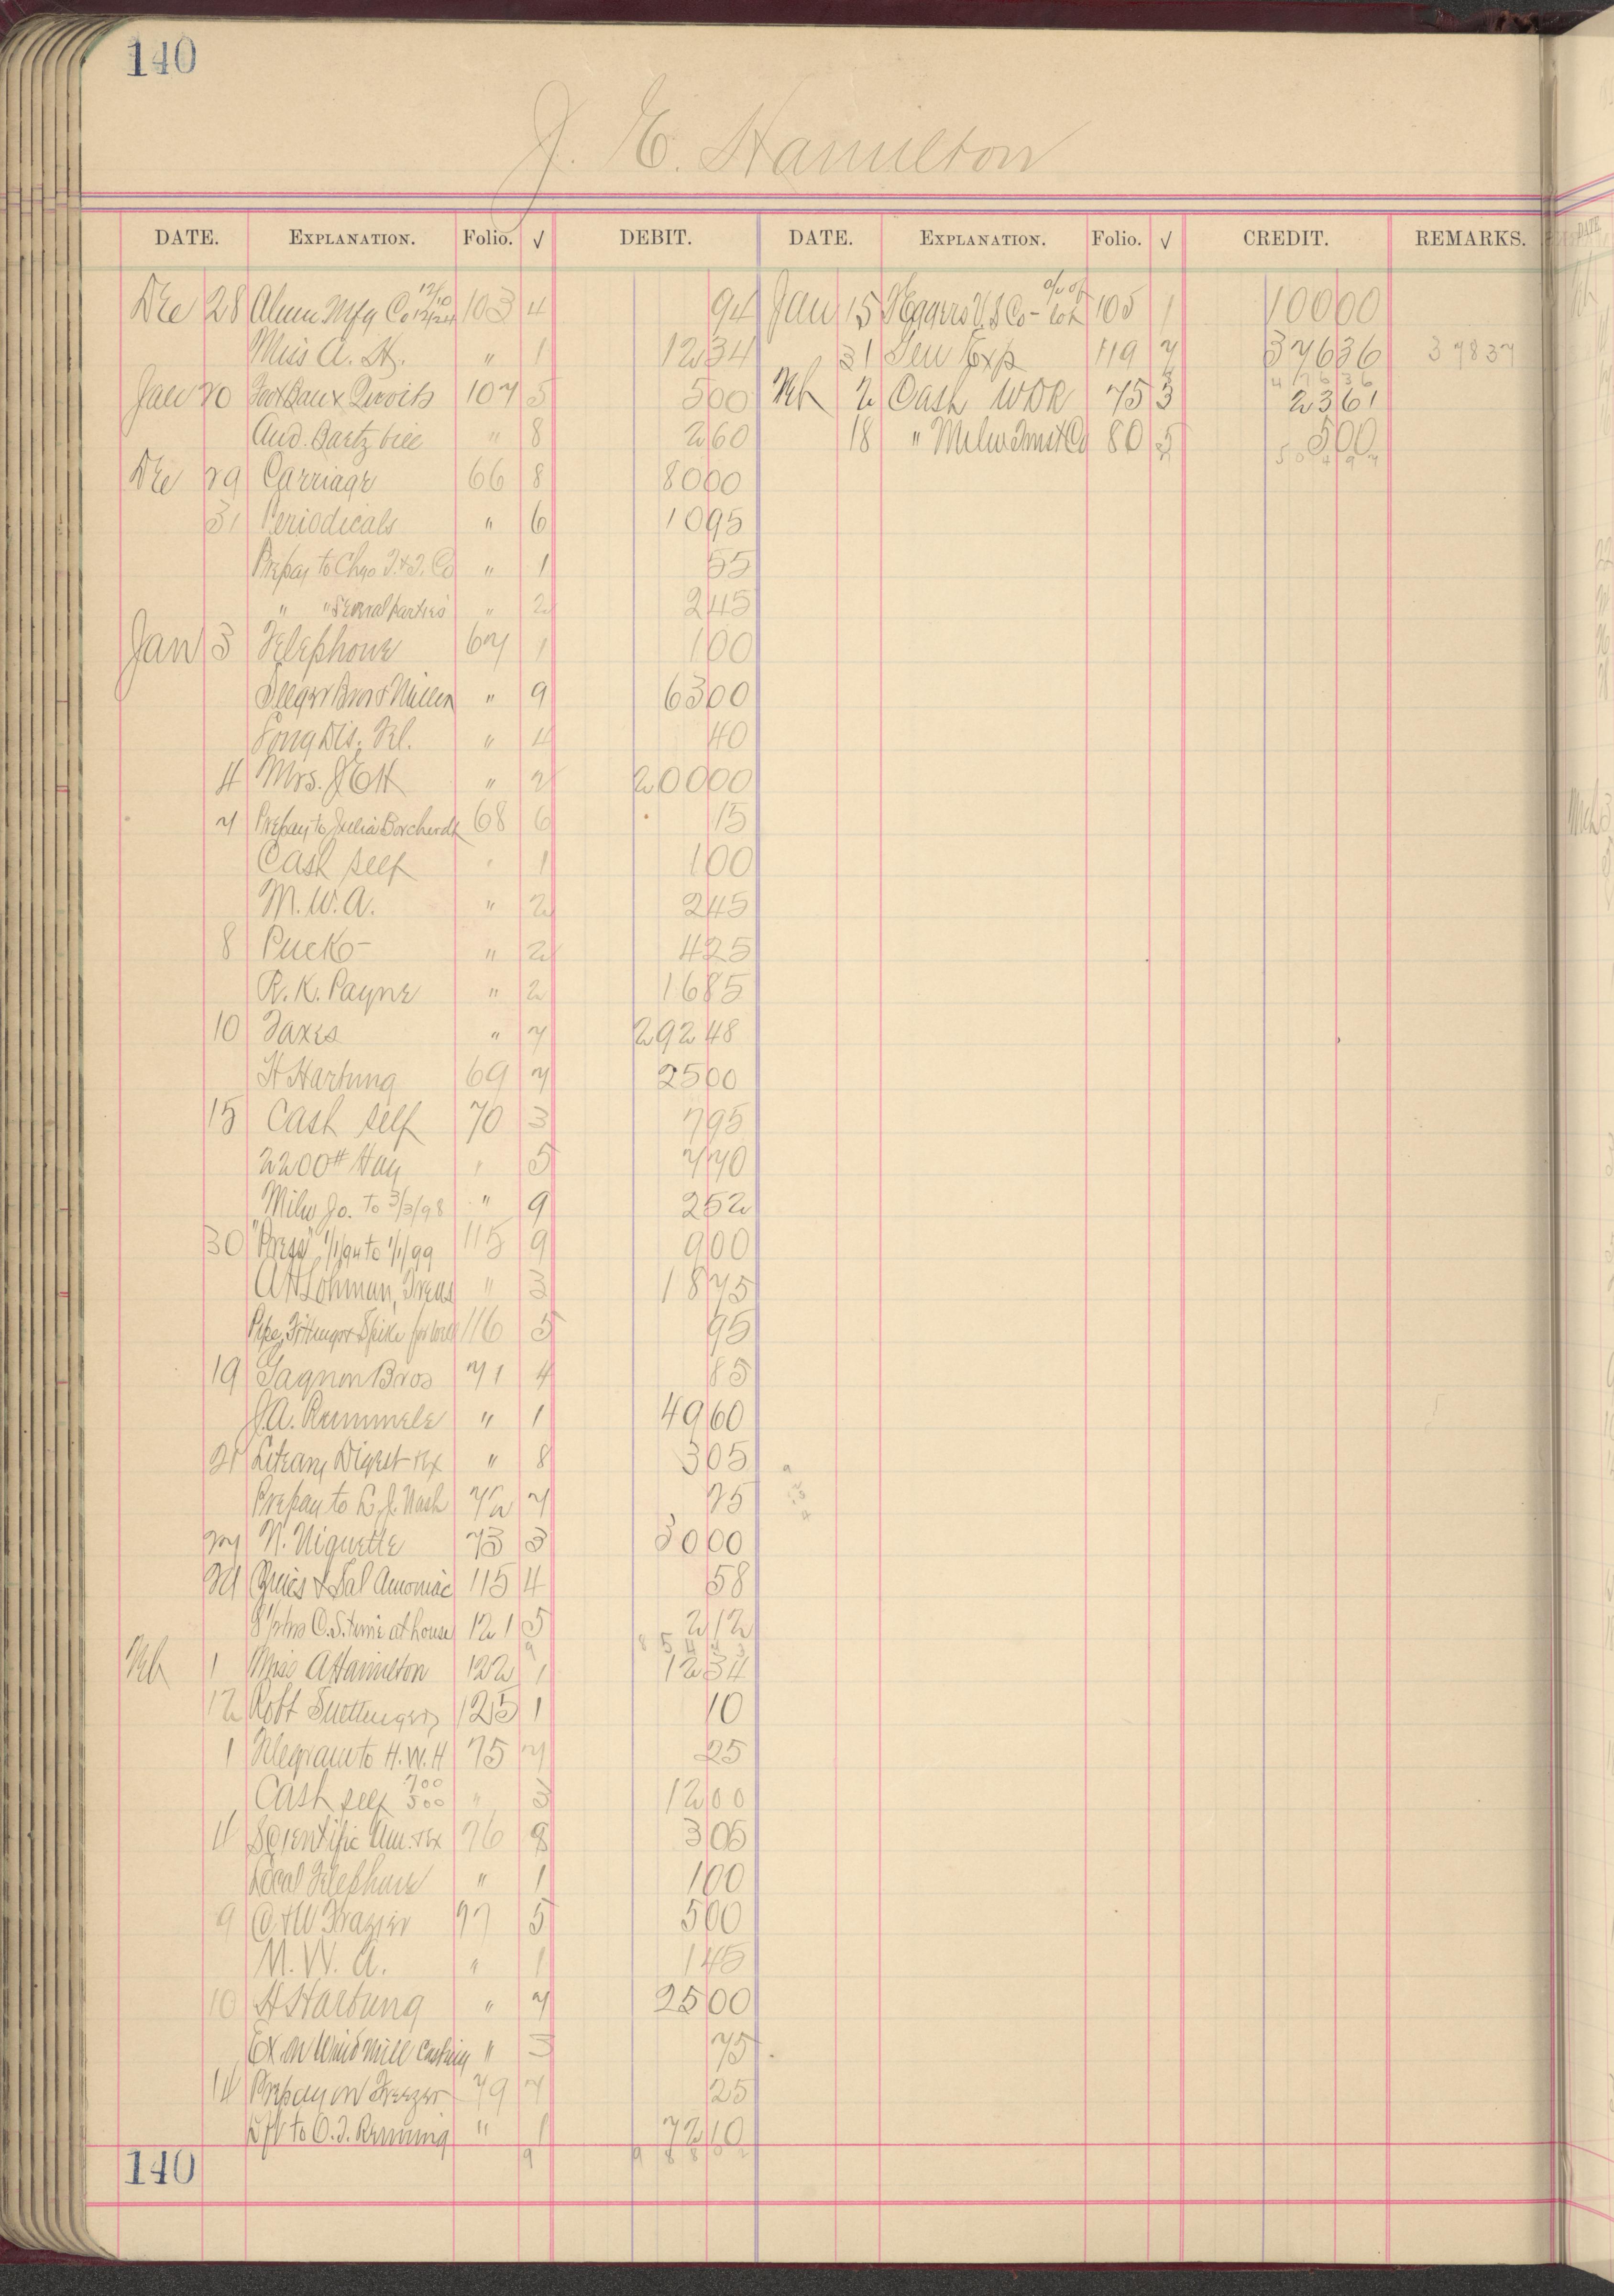 140
J. E. Hamilton
DATE. EXPLANATION. Folio. √ DEBIT. DATE. EXPLANATION. Folio. √ CREDIT. REMARKS.
Dec 28 Alum Mfg Co 12/10 12/24 103 4 94 Jan 15 Eggers V. S Co - 105 1 10000
Miss A. H. " 1 1234 31 Gen Exp 119 7 37636 37837
Jan 20 107 5 500 Feb 2 Cash WDR 75 3 2361
47636
Aug. Bartz bill " 8 260 18 " 80 5 500
50497
Dec 29 Carriage 66 8 8000
31 Periodicals " 6 1095
Prepay to Chgo T. & T. Co " 1 55
" " Several parties " 2 245
Jan 3 Telephone 67 1 100
Bros & Miller " 9 6300
Long Dis. Tel. " 4 40
4 Mrs. J E H " 2 20000
7 Prepay to Julia Borcherdt 68 6 15
Cash self " 1 100
M. W. A. " 2 245
8 Puck " 2 425
R. K. Payne " 2 1685
10 Taxes " 7 29248
H Hartung 69 7 2500
15 Cash self 70 3 795
2200# Hay " 5 770
Milw Jo. to 3/3/98 " 9 252
30 "Press" 1/1/94 to 1/1/99 115 9 900
A H Lohman, Treas " 3 1875
Pipe, Fittings & Spike for well 116 5 95
19 Gagnon Bros 71 4 85
J. A. Rummele " 1 4960
21 Literary Digest & Ex " 8 305
Prepay to L. J. Nash 72 7 25
27 N. Niquette 73 3 3000
24 & Sal Amoniac 115 4 58
8 1/2 hrs O. S. time at house 121 5 212
85443
Feb 1 Miss A Hamilton 122 1 1234
12 Robt Suettinger 125 1 10
1 Telegram to H. W. H 75 7 25
Cash self 700 500 " 3 1200
4 Scientific Am. & Ex 76 8 305
Local Telephone " 1 100
9 C. & W Frazier 77 5 500
M. W. A. " 1 145
10 H Hartung " 7 2500
Ex on Windmill Casting " 3 75
14 Prepay on Freezer 79 7 25
Dft to O. J. " 1 7210
9 98802
140